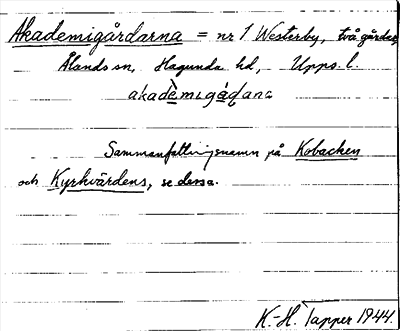 Akademigårdarna = nr 1 Westerby, två gårdar,
Ålands sn, Hagunda hd, Upps. l.
akadèmigáɖana
Sammanfattningsnamn på Kobacken
och Kyrkvärdens, se dessa.
K.-H. Tapper 1944.